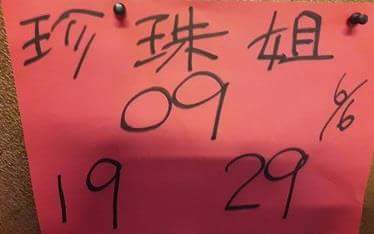 珍珠姐
09 6/6
19 29